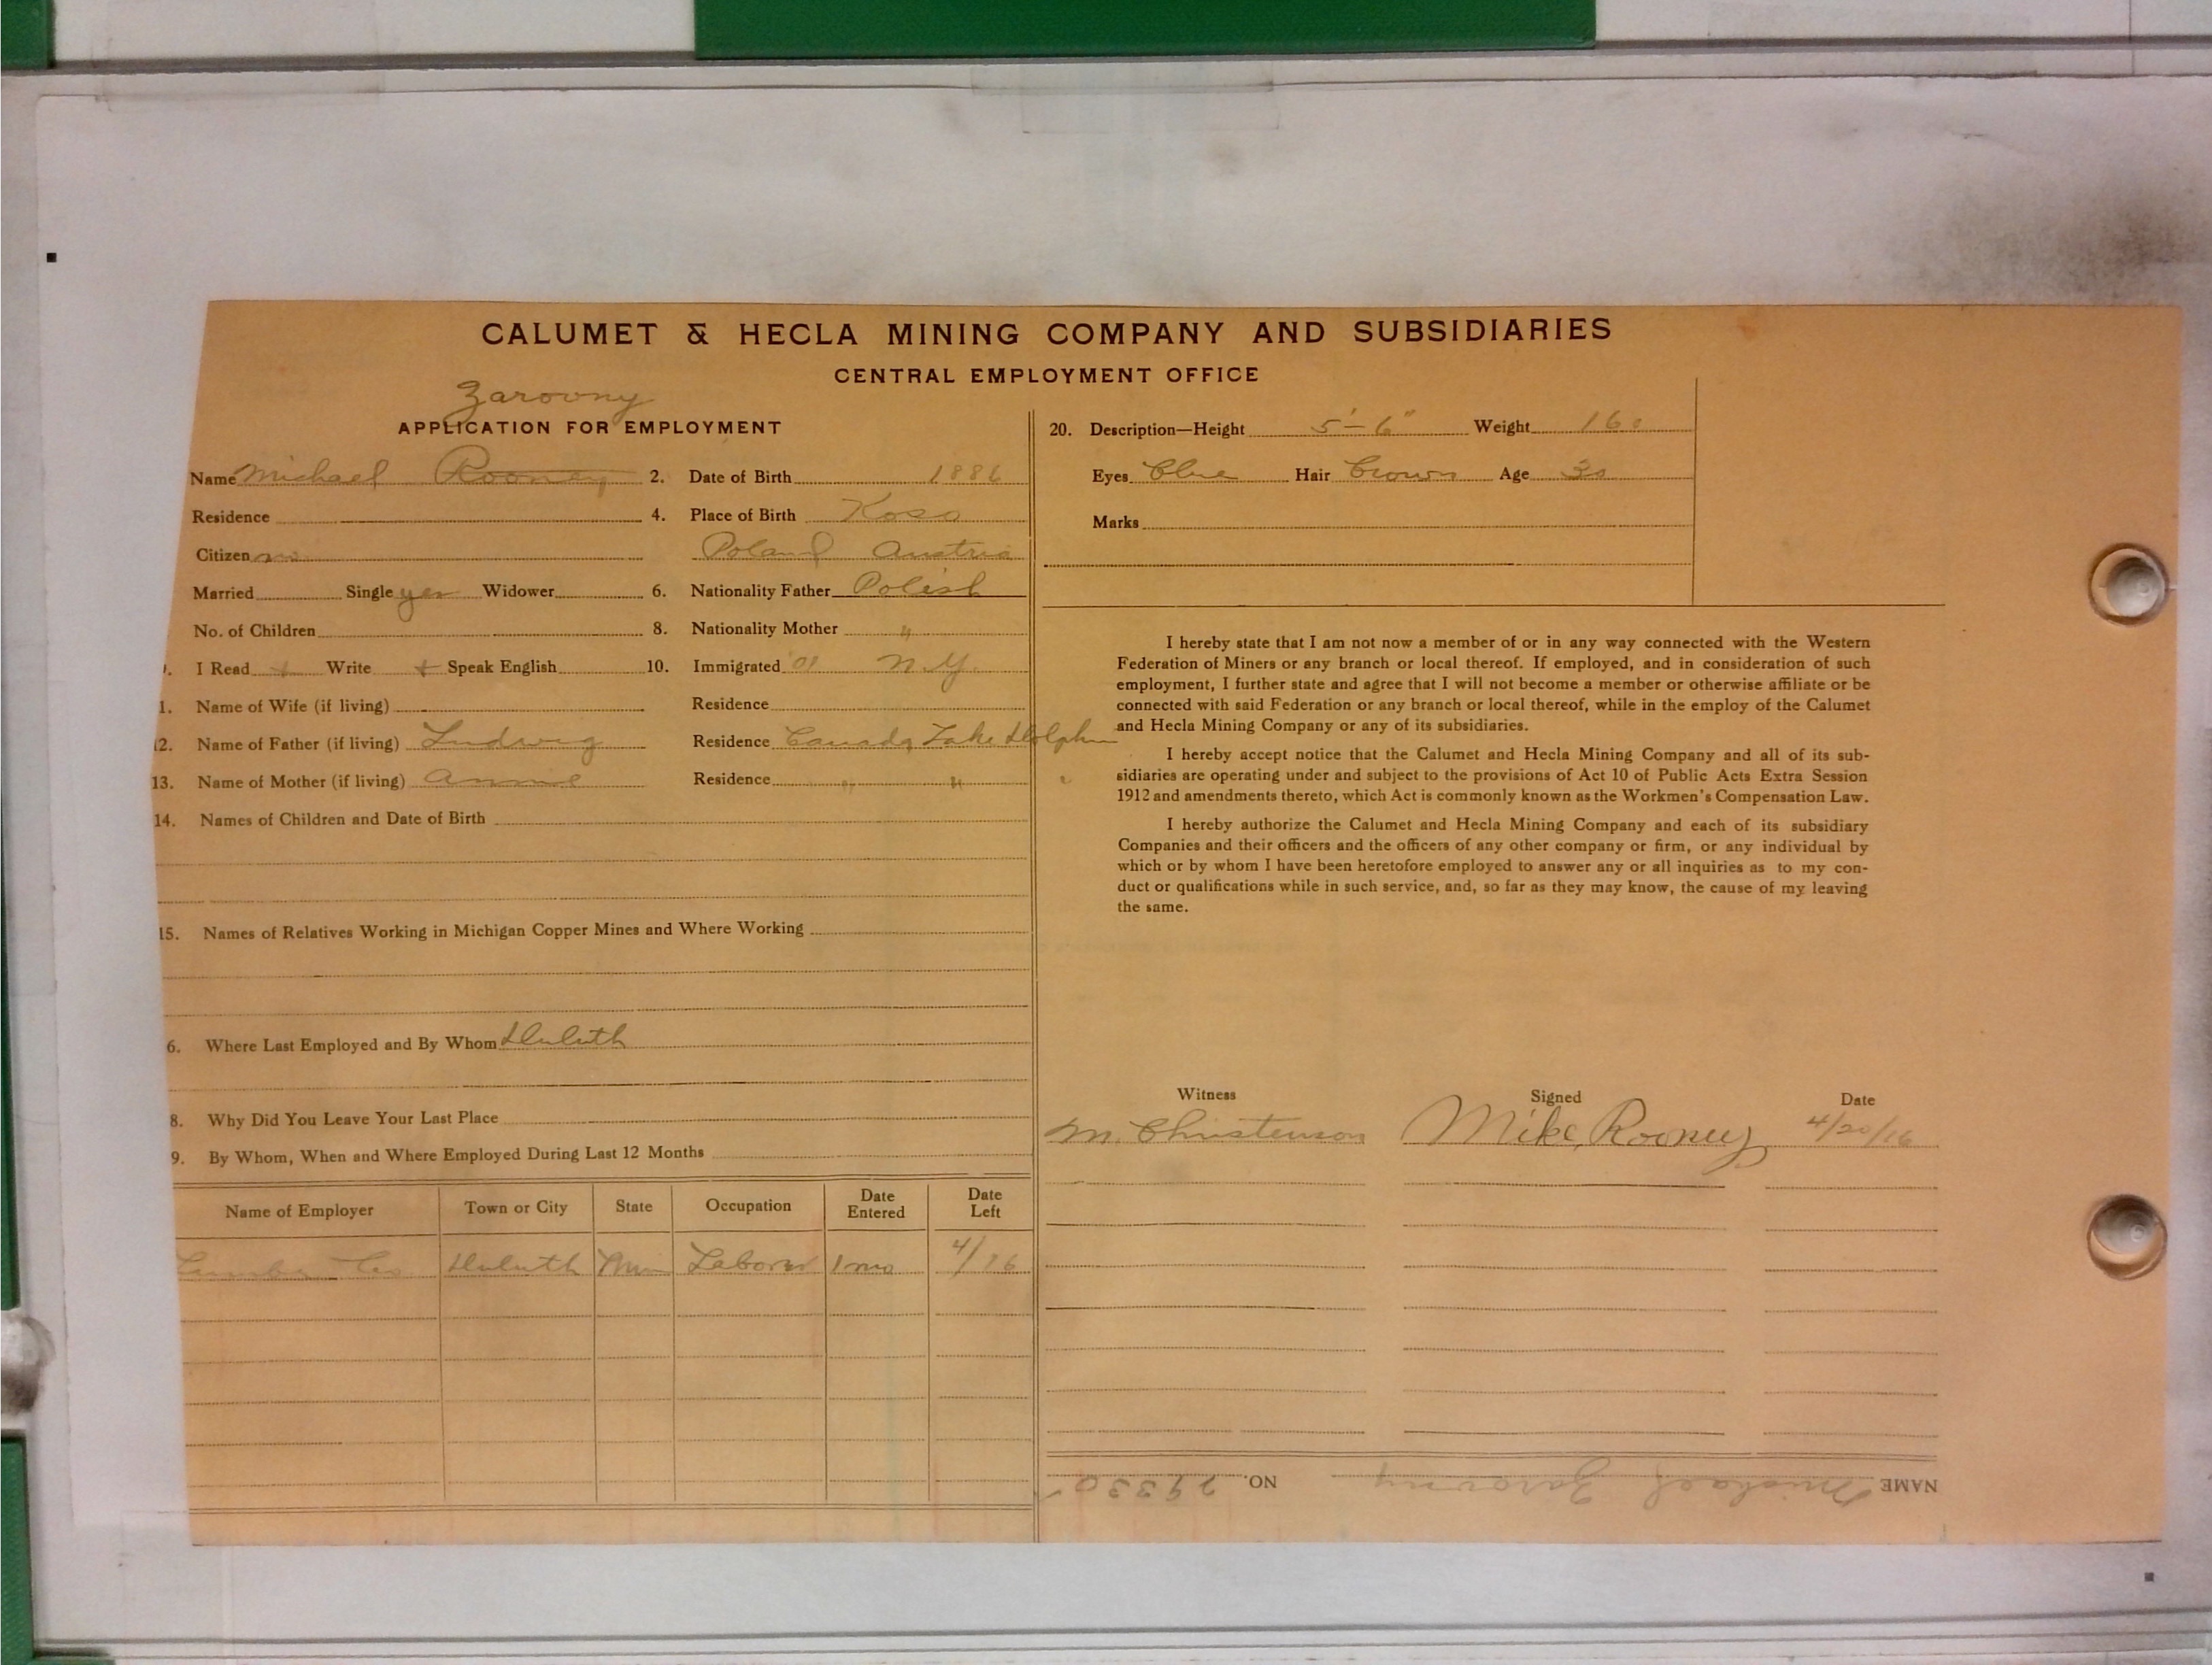 CALUMET & HECLA MINING COMPANY AND SUBSIDIARIES
CENTRAL EMPLOYMENT OFFICE
Zarovny
APPLICATION FOR EMPLOYMENT
Name Michael Rooney
Residence
Citizen no
Married Single yes Widower
No. of Children
I Read + Write + Speak English
1. Name of Wife (if living)
12. Name of Father (if living) Ludwig
13. Name of Mother (if living) Annie
2. Date of Birth 1886
4. Place of Birth
Poland Austria
6. Nationality Father Polish
8. Nationality Mother "
10. Immigrated N.Y.
Residence
Residence Canada Lake
Residence " " "
14. Names of Children and Date of Birth
15. Names of Relatives Working in Michigan Copper Mines and Where Working
6. Where Last Employed and By Whom Duluth
8. Why Did You Leave Your Last Place
9. By Whom, When and Where Employed During Last 12 Months
Name of Employer Town or City State Occupation Date Entered Date Left
Lumber Co Duluth Min Laborer 1 mo 4/16
20. Description—Height 5'-6" Weight 160
Eyes Blue Hair Brown Age 30
Marks
I hereby state that I am not now a member of or in any way connected with the Western
Federation of Miners or any branch or local thereof. If employed, and in consideration of such
employment, I further state and agree that I will not become a member or otherwise affiliate or be
connected with said Federation or any branch or local thereof, while in the employ of the Calumet
and Hecla Mining Company or any of its subsidiaries.
I hereby accept notice that the Calumet and Hecla Mining Company and all of its sub-
sidiaries are operating under and subject to the provisions of Act 10 of Public Acts Extra Session
1912 and amendments thereto, which Act is commonly known as the Workmen's Compensation Law.
I hereby authorize the Calumet and Hecla Mining Company and each of its subsidiary
Companies and their officers and the officers of any other company or firm, or any individual by
which or by whom I have been heretofore employed to answer any or all inquiries as to my con-
duct or qualifications while in such service, and, so far as they may know, the cause of my leaving
the same.
Witness Signed Date
M. Christenson Mike Rooney 4/20/16
NAME Michael Zarovny NO. 29330